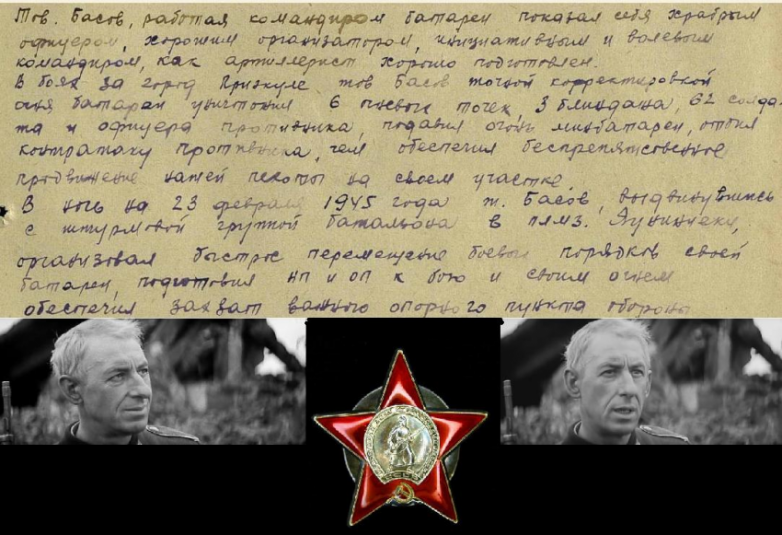 Тов. Басов, работая командиром батареи показал себя храбрым
офицером, хорошим организатором, инициативным и волевым
командиром, как артиллерист хорошо подготовлен.
В боях за город Приэкуле тов Басов точной корректировкой
огня батареи уничтожил 6 пов точек, 3 блиндажа, 62 солда-
та и офицера противника, подавил огонь минбатареи, отбил
контратаку противника, чем обеспечил беспрепятственное
продвижение нашей пехоты на своем участке
В ночь на 23 февраля 1945 года т. Басов, выдвинувшись
с штурмовой группой батальона в
организовал быстрое перемещение боевых порядков своей
батареи, подготовил НП и ОП к бою и своим огнем
обеспечил захват важного опорного пункта обороны